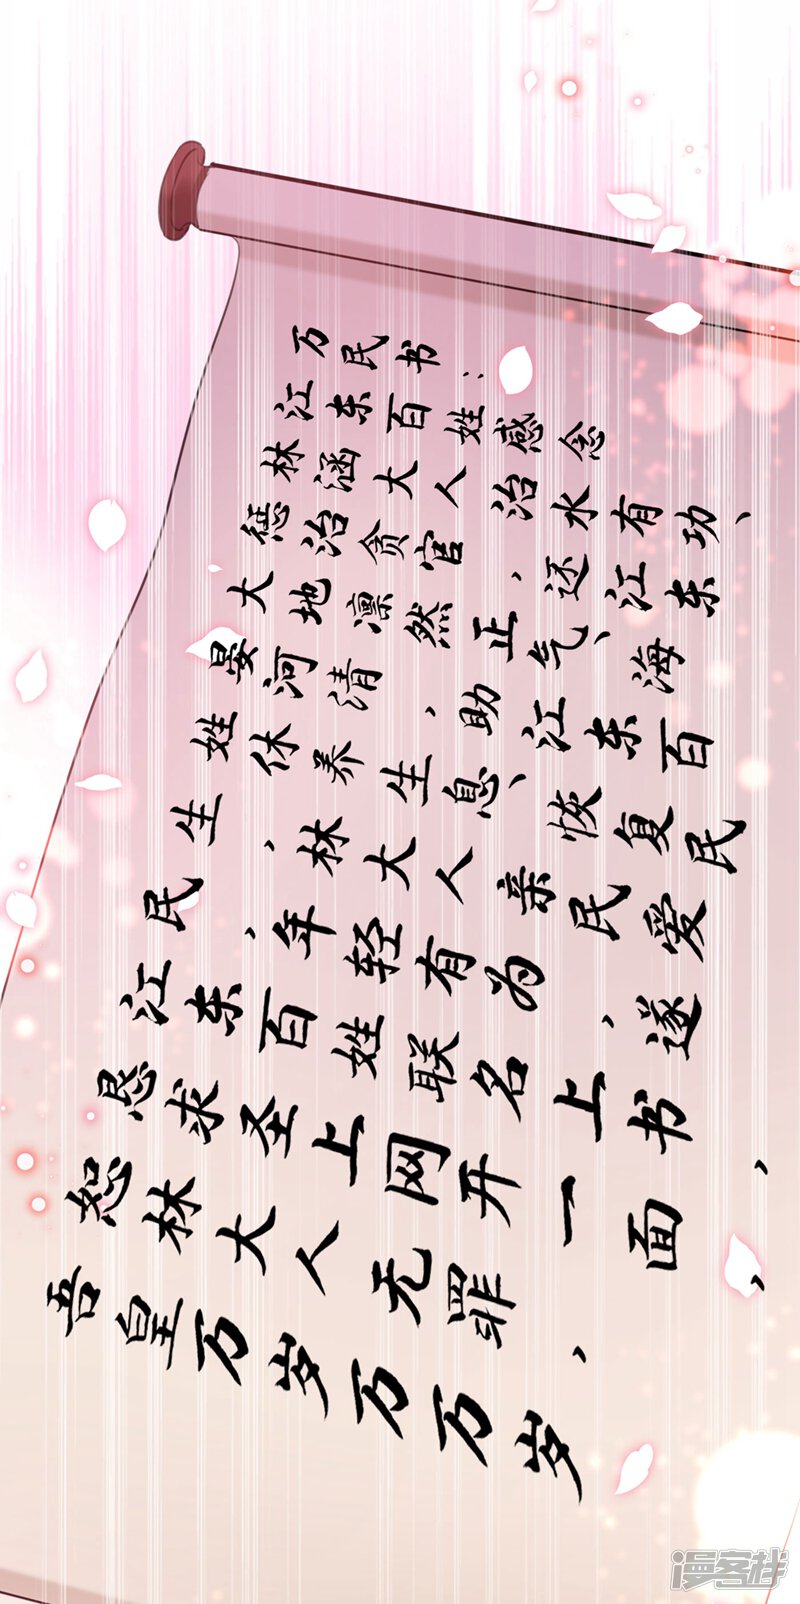 万民书：
江东百姓感念
林涵大人治水有功、
惩治贪官，还江东
大地凛然正气、海
晏河清，助江东百
姓休养生息、恢复民
生、林大人亲民爱
民、年轻有为，遂
江东百姓联名上书，
恳求圣上网开一面，
恕林大人无罪，
吾皇万岁万万岁
漫客栈